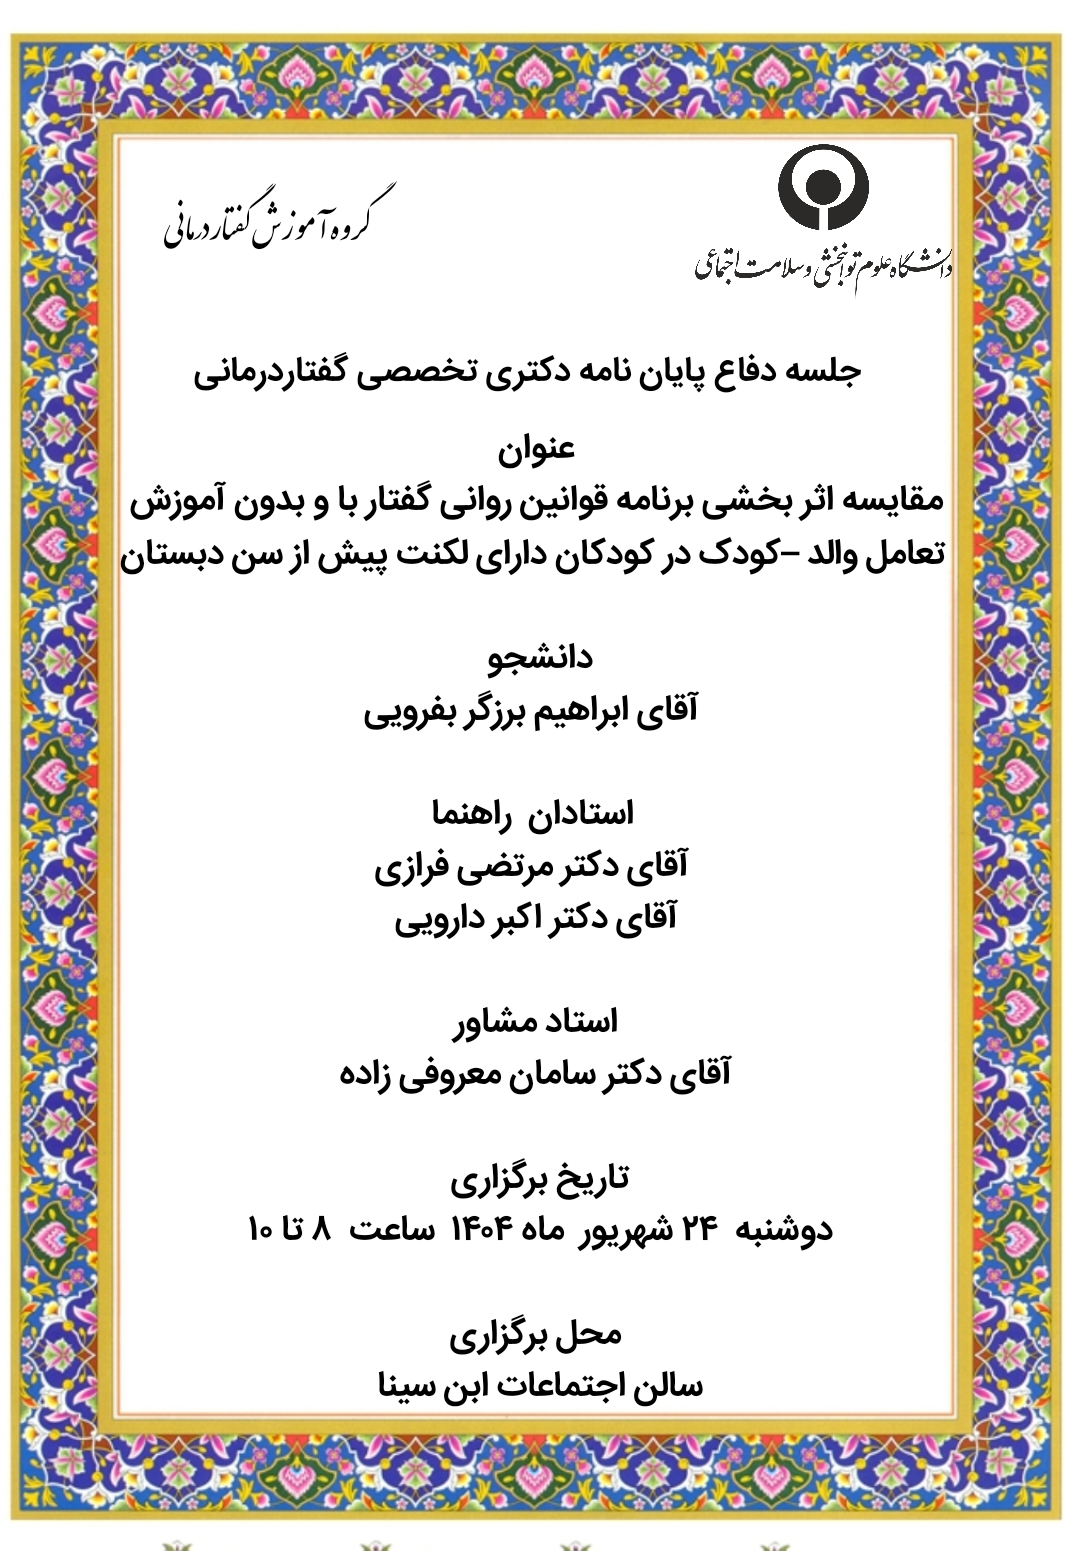 دانشگاه علوم توانبخشی و سلامت اجتماعی
گروه آموزش گفتاردرمانی
جلسه دفاع پایان نامه دکتری تخصصی گفتاردرمانی
عنوان
مقایسه اثر بخشی برنامه قوانین روانی گفتار با و بدون آموزش
تعامل والد –کودک در کودکان دارای لکنت پیش از سن دبستان
دانشجو
آقای ابراهیم برزگر بفرویی
استادان راهنما
آقای دکتر مرتضی فرازی
آقای دکتر اکبر دارویی
استاد مشاور
آقای دکتر سامان معروفی زاده
تاریخ برگزاری
دوشنبه ۲۴ شهریور ماه ۱۴۰۴ ساعت ۸ تا ۱۰
محل برگزاری
سالن اجتماعات ابن سینا